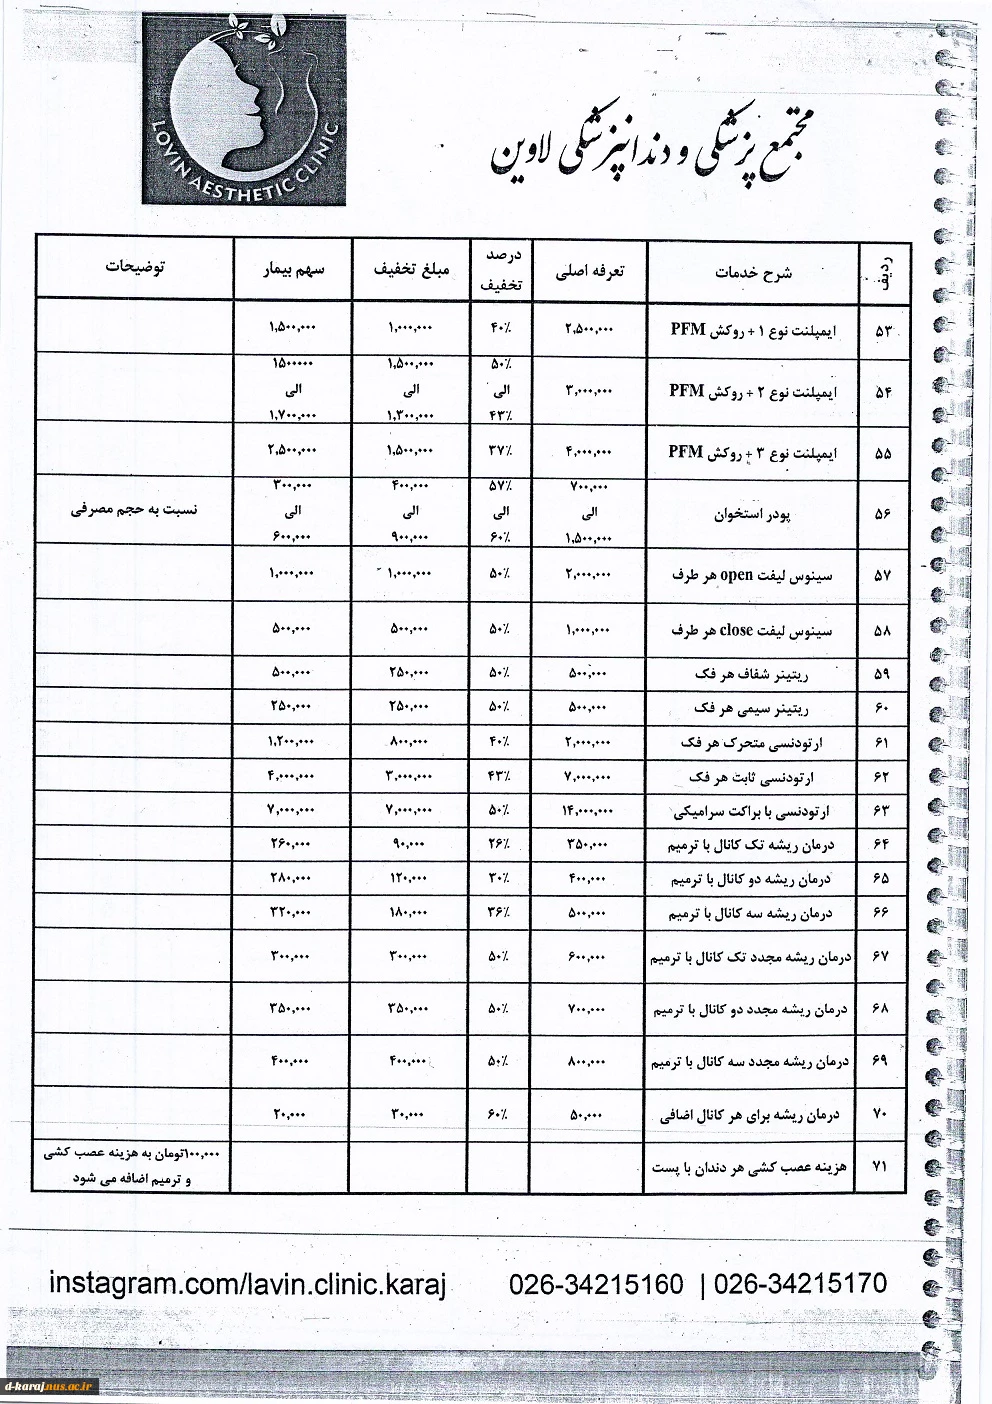 LOVIN AESTHETIC CLINIC
مجتمع پزشکی و دندانپزشکی لاوین
ردیف شرح خدمات تعرفه اصلی درصد تخفیف مبلغ تخفیف سهم بیمار توضیحات
۵۳ ایمپلنت نوع ۱ + روکش PFM ۲,۵۰۰,۰۰۰ ۴۰٪ ۱,۰۰۰,۰۰۰ ۱,۵۰۰,۰۰۰
۵۴ ایمپلنت نوع ۲ + روکش PFM ۳,۰۰۰,۰۰۰ ۵۰٪ الی ۴۳٪ ۱,۵۰۰,۰۰۰ الی ۱,۳۰۰,۰۰۰ ۱۵۰۰۰۰۰ الی ۱,۷۰۰,۰۰۰
۵۵ ایمپلنت نوع ۳ + روکش PFM ۴,۰۰۰,۰۰۰ ۳۷٪ ۱,۵۰۰,۰۰۰ ۲,۵۰۰,۰۰۰
۵۶ پودر استخوان ۷۰۰,۰۰۰ الی ۱,۵۰۰,۰۰۰ ۵۷٪ الی ۶۰٪ ۴۰۰,۰۰۰ الی ۹۰۰,۰۰۰ ۳۰۰,۰۰۰ الی ۶۰۰,۰۰۰ نسبت به حجم مصرفی
۵۷ سینوس لیفت open هر طرف ۲,۰۰۰,۰۰۰ ۵۰٪ ۱,۰۰۰,۰۰۰ ۱,۰۰۰,۰۰۰
۵۸ سینوس لیفت close هر طرف ۱,۰۰۰,۰۰۰ ۵۰٪ ۵۰۰,۰۰۰ ۵۰۰,۰۰۰
۵۹ ریتینر شفاف هر فک ۵۰۰,۰۰۰ ۵۰٪ ۲۵۰,۰۰۰ ۵۰۰,۰۰۰
۶۰ ریتینر سیمی هر فک ۵۰۰,۰۰۰ ۵۰٪ ۲۵۰,۰۰۰ ۲۵۰,۰۰۰
۶۱ ارتودنسی متحرک هر فک ۲,۰۰۰,۰۰۰ ۴۰٪ ۸۰۰,۰۰۰ ۱,۲۰۰,۰۰۰
۶۲ ارتودنسی ثابت هر فک ۷,۰۰۰,۰۰۰ ۴۳٪ ۳,۰۰۰,۰۰۰ ۴,۰۰۰,۰۰۰
۶۳ ارتودنسی با براکت سرامیکی ۱۴,۰۰۰,۰۰۰ ۵۰٪ ۷,۰۰۰,۰۰۰ ۷,۰۰۰,۰۰۰
۶۴ درمان ریشه تک کانال با ترمیم ۳۵۰,۰۰۰ ۲۶٪ ۹۰,۰۰۰ ۲۶۰,۰۰۰
۶۵ درمان ریشه دو کانال با ترمیم ۴۰۰,۰۰۰ ۳۰٪ ۱۲۰,۰۰۰ ۲۸۰,۰۰۰
۶۶ درمان ریشه سه کانال با ترمیم ۵۰۰,۰۰۰ ۳۶٪ ۱۸۰,۰۰۰ ۳۲۰,۰۰۰
۶۷ درمان ریشه مجدد تک کانال با ترمیم ۶۰۰,۰۰۰ ۵۰٪ ۳۰۰,۰۰۰ ۳۰۰,۰۰۰
۶۸ درمان ریشه مجدد دو کانال با ترمیم ۷۰۰,۰۰۰ ۵۰٪ ۳۵۰,۰۰۰ ۳۵۰,۰۰۰
۶۹ درمان ریشه مجدد سه کانال با ترمیم ۸۰۰,۰۰۰ ۵۰٪ ۴۰۰,۰۰۰ ۴۰۰,۰۰۰
۷۰ درمان ریشه برای هر کانال اضافی ۵۰,۰۰۰ ۶۰٪ ۳۰,۰۰۰ ۲۰,۰۰۰
۷۱ هزینه عصب کشی هر دندان با پست ۱۰۰,۰۰۰تومان به هزینه عصب کشی
و ترمیم اضافه می شود
instagram.com/lavin.clinic.karaj 026-34215160 | 026-34215170
d-karaj.nus.ac.ir